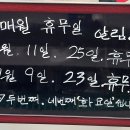 매월 휴무일 안내
월 11일. 25일. 휴무
월 9일. 23일. 휴무
두번째. 네번째 화요일